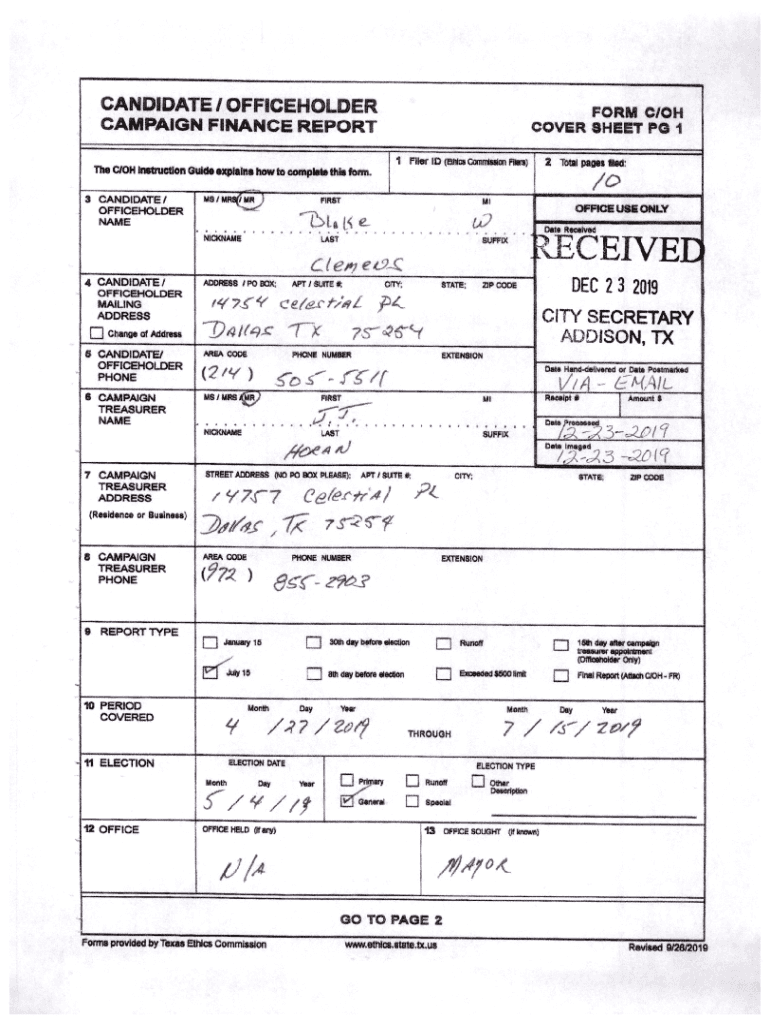 CANDIDATE / OFFICEHOLDER
CAMPAIGN FINANCE REPORT
FORM C/OH
COVER SHEET PG 1
The C/OH Instruction Guide explains how to complete this form.
1 Filer ID (Ethics Commission Filers)
2 Total pages filed:
10
3 CANDIDATE / OFFICEHOLDER NAME
MS / MRS / MR FIRST MI
Blake W
NICKNAME LAST SUFFIX
Clemens
OFFICE USE ONLY
Date Received
RECEIVED
DEC 23 2019
CITY SECRETARY
ADDISON, TX
4 CANDIDATE / OFFICEHOLDER MAILING ADDRESS
Change of Address
ADDRESS / PO BOX; APT / SUITE #; CITY; STATE; ZIP CODE
14754 celestial PL
DALLAS TX 75254
5 CANDIDATE/ OFFICEHOLDER PHONE
AREA CODE PHONE NUMBER EXTENSION
(214) 505-5511
Date Hand-delivered or Date Postmarked
VIA - EMAIL
Receipt # Amount $
Date Processed
12-23-2019
Date Imaged
12-23-2019
6 CAMPAIGN TREASURER NAME
MS / MRS / MR FIRST MI
J.J.
NICKNAME LAST SUFFIX
HORAN
7 CAMPAIGN TREASURER ADDRESS
(Residence or Business)
STREET ADDRESS (NO PO BOX PLEASE); APT / SUITE #; CITY; STATE; ZIP CODE
14757 Celestial PL
Dallas, TX 75254
8 CAMPAIGN TREASURER PHONE
AREA CODE PHONE NUMBER EXTENSION
(972) 855-2903
9 REPORT TYPE
January 15 30th day before election Runoff 15th day after campaign treasurer appointment (Officeholder Only)
July 15 8th day before election Exceeded $500 limit Final Report (Attach C/OH - FR)
10 PERIOD COVERED
Month Day Year Month Day Year
4 / 27 / 2019 THROUGH 7 / 15 / 2019
11 ELECTION
ELECTION DATE
Month Day Year
5 / 4 / 19
ELECTION TYPE
Primary Runoff Other Description
General Special
12 OFFICE
OFFICE HELD (if any)
N/A
13 OFFICE SOUGHT (if known)
MAYOR
GO TO PAGE 2
Forms provided by Texas Ethics Commission www.ethics.state.tx.us Revised 9/26/2019